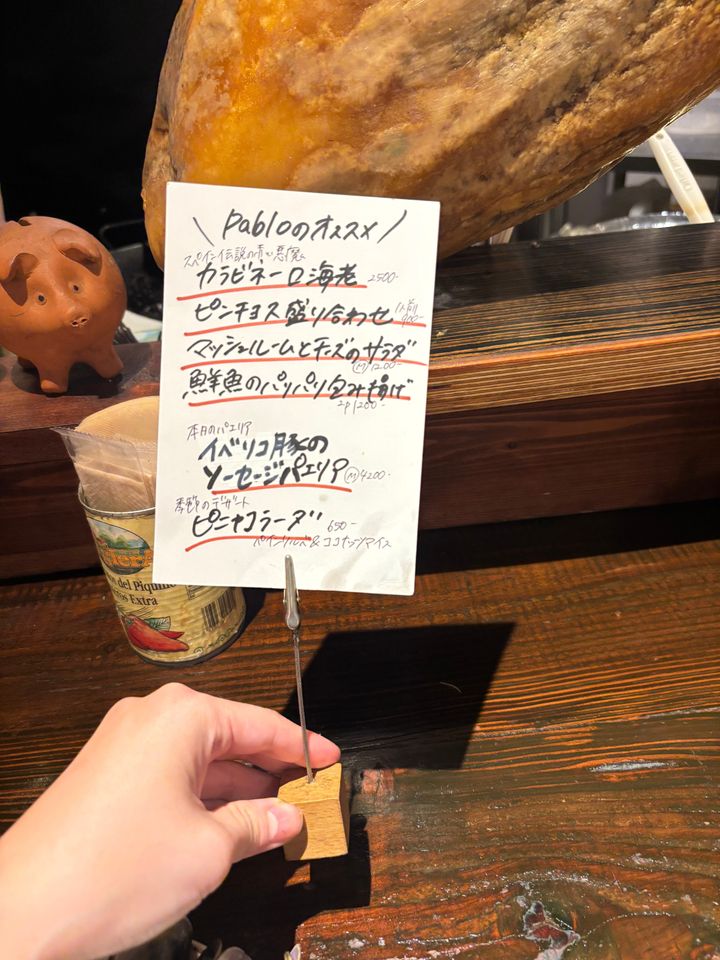 \ Pabloのオススメ /
スペイン伝説の赤い悪魔
カラビネーロ海老 2500-
ピンチョス盛り合わせ 1人前 900-
マッシュルームとチーズのサラダ
Ⓜ1200-
鮮魚のパリパリ包み揚げ
2p1200-
本日のパエリア
イベリコ豚の
ソーセージパエリア Ⓜ4200-
季節のデザート
ピニャコラーダ 650-
パインソルベ&ココナッツアイス
del Piquillo
Extra